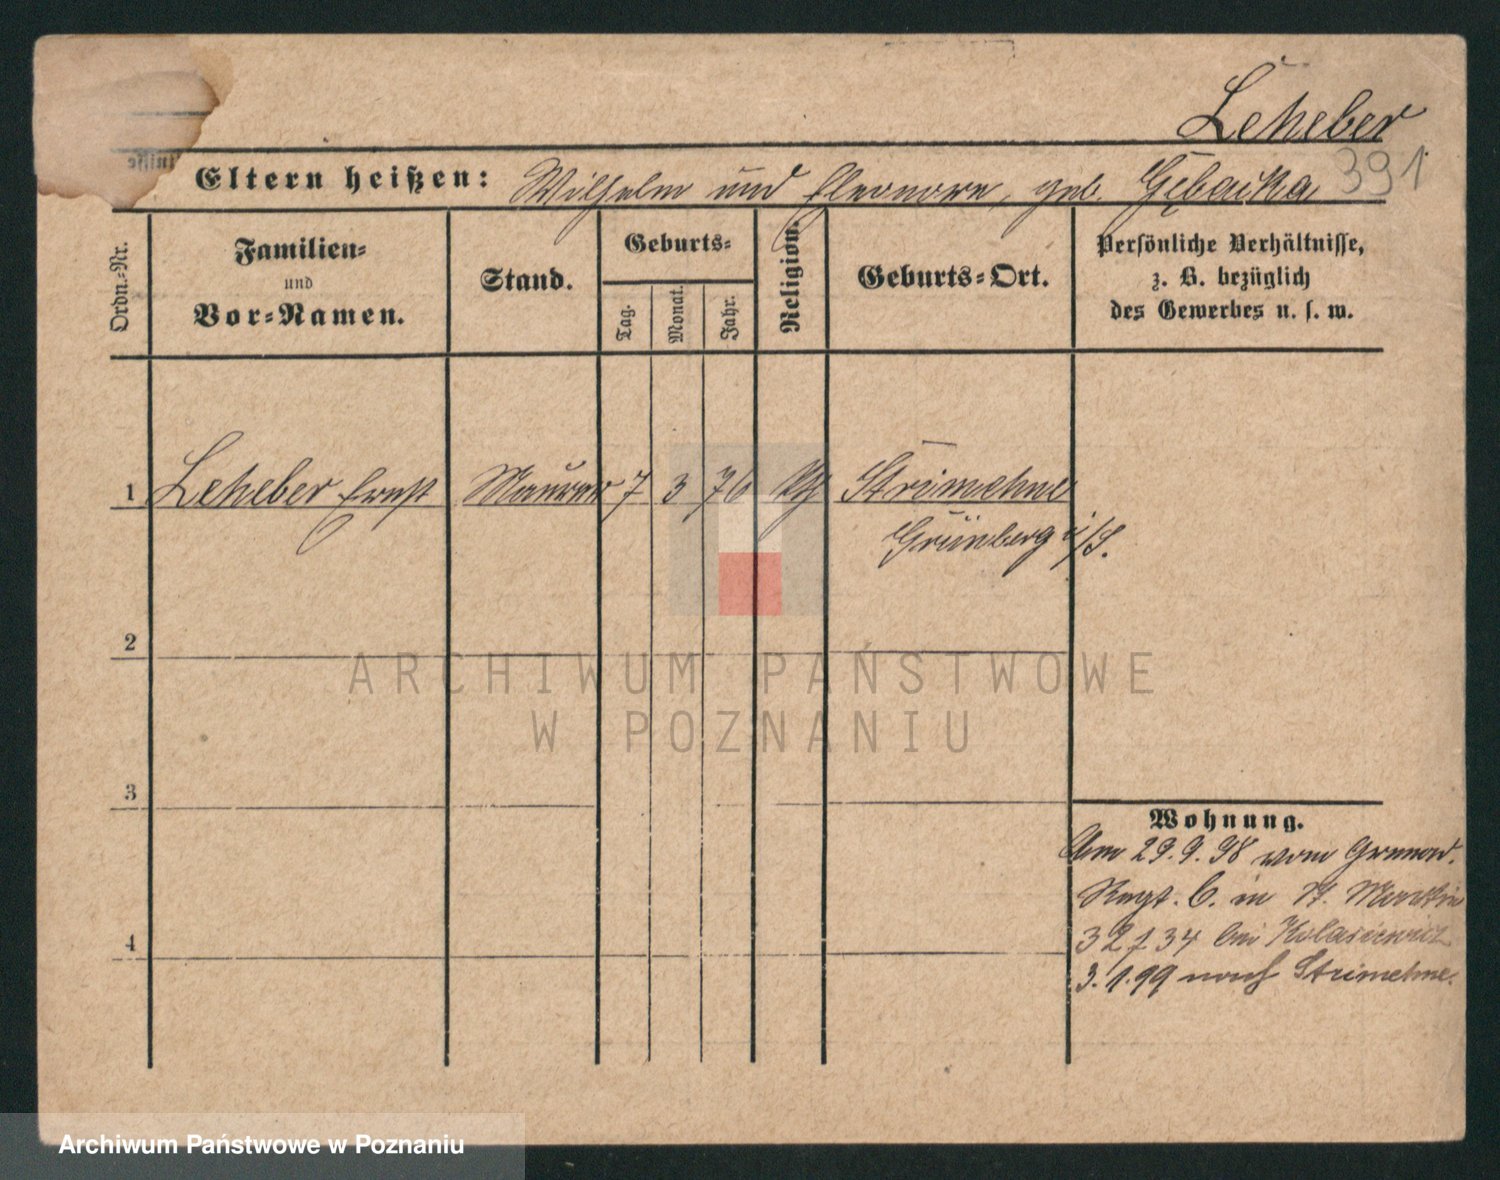 Leheber
391
Eltern heißen: Wilhelm und Eleonore, geb. Gębacka
Ordn.-Nr.
Familien-
und
Vor-Namen.
Stand.
Geburts-
Tag.
Monat.
Jahr.
Religion.
Geburts-Ort.
Persönliche Verhältnisse,
z. B. bezüglich
des Gewerbes u. s. w.
1 Leheber Ernst Maurer 7 3 76 Strimehne
Grünberg i/S.
2
3
4
Wohnung.
Am 29.9.98 vom Grenad.
Regt. 6. in St. Martin
32/34 bei Kolasiewicz
3.1.99 nach Strimehne.
ARCHIWUM PAŃSTWOWE
W POZNANIU
Archiwum Państwowe w Poznaniu